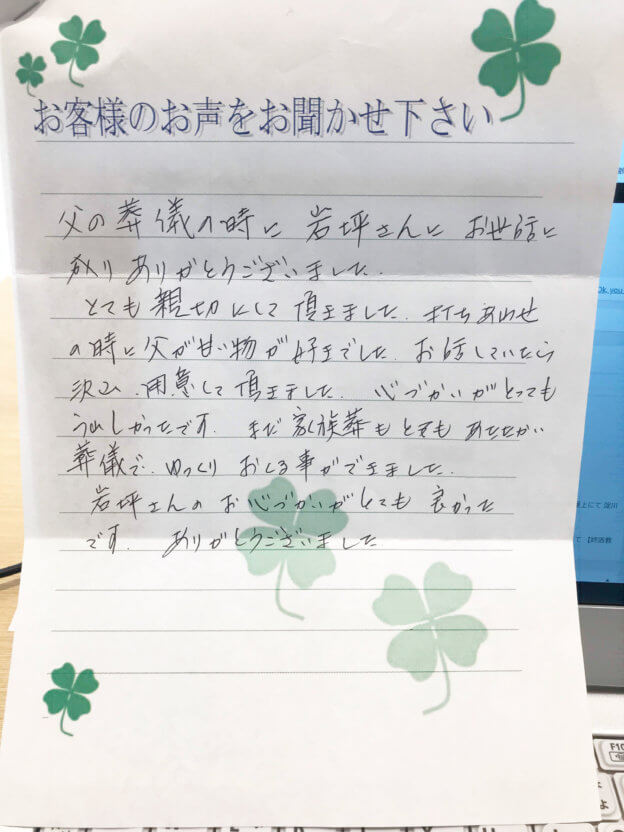 お客様のお声をお聞かせ下さい
父の葬儀の時に 岩坪さんに お世話に
成りありがとうございました.
とても親切にして頂きました. 打ちあわせ
の時に父が甘い物が好きでした. お話していたら
沢山.用意して頂きました. 心づかいがとっても
うれしかったです. また家族葬もとてもあたたかい
葬儀で.ゆっくりおくる事ができました.
岩坪さんのお心づかいがとても 良かった
です. ありがとうございました
Ok, you
上にて 淀川
て 【終活教
F10